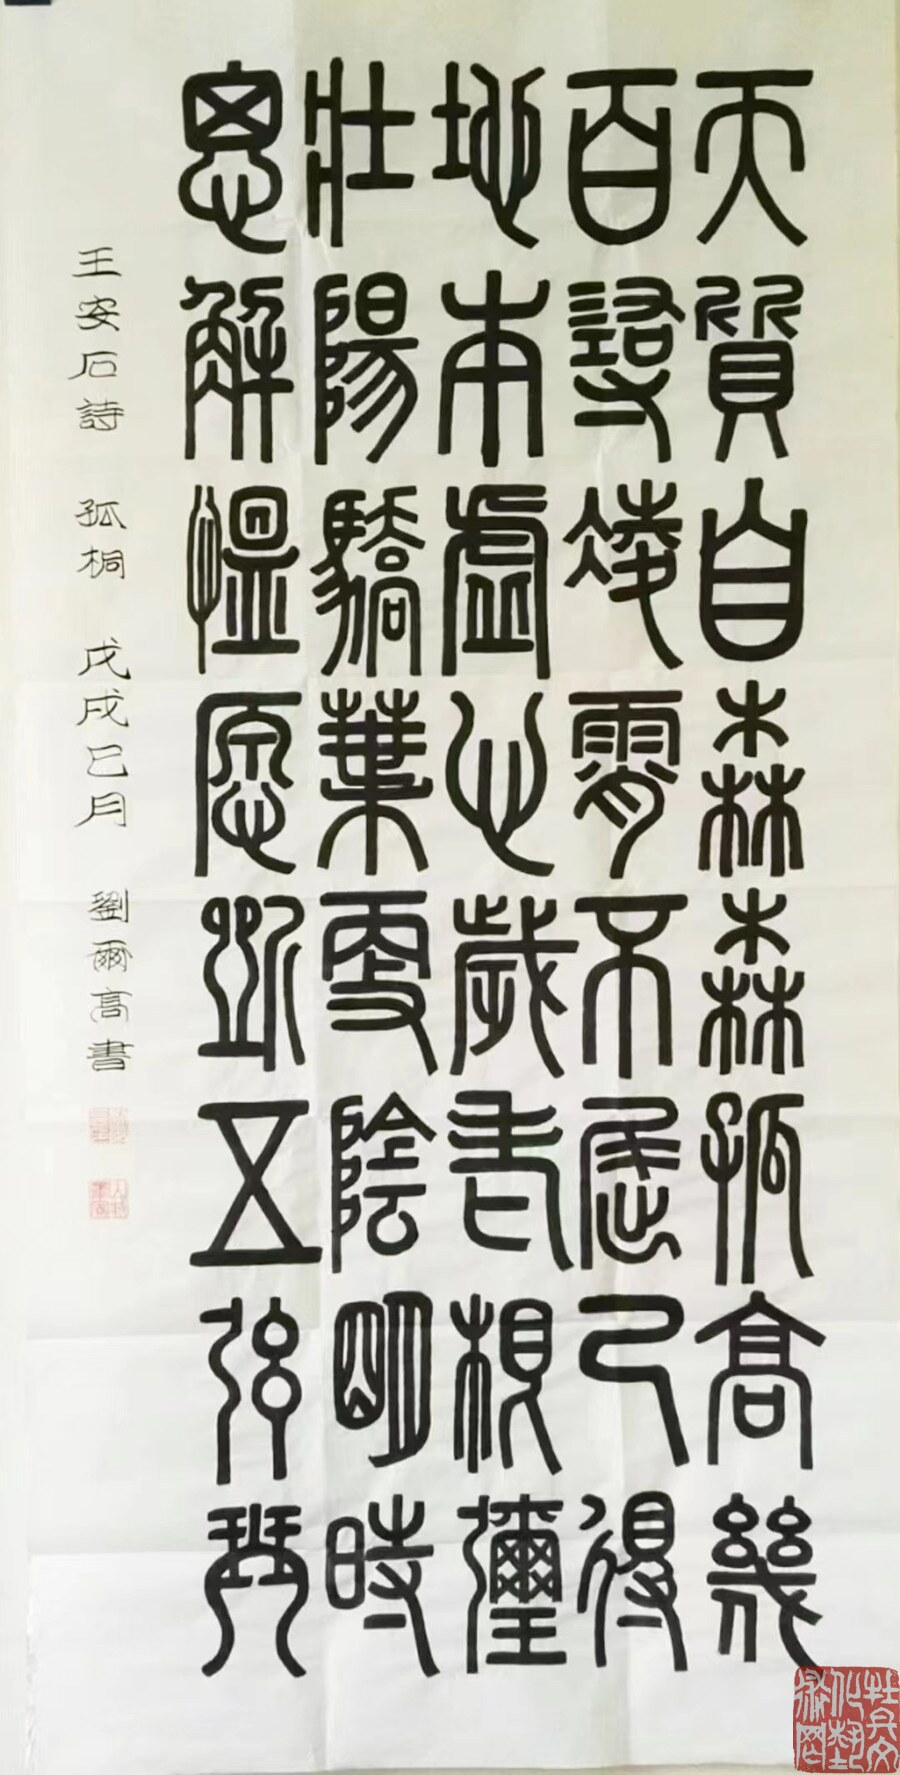 天質自森森孤高幾
百尋凌霄不屈己得
地本虛心歲老根彌
壯陽驕葉更陰明時
思解慍愿斲五弦琴
王安石詩 孤桐 戊戌巳月 劉爾高書